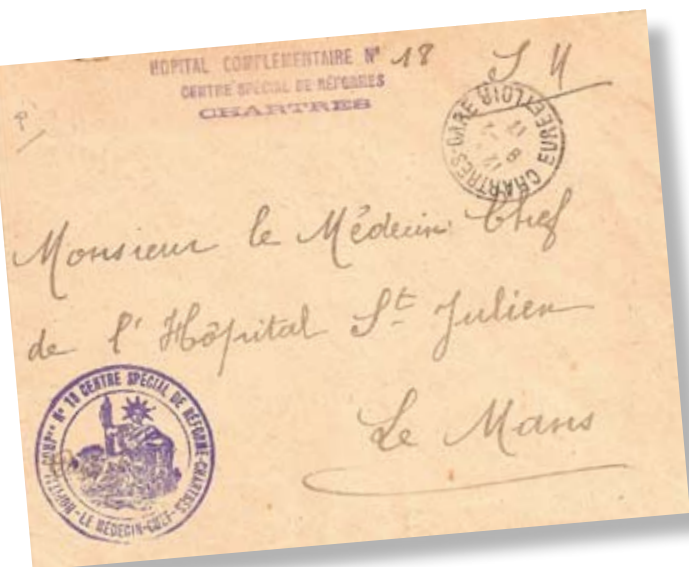 HOPITAL COMPLEMENTAIRE Nº 18
CENTRE SPECIAL DE RÉFORMES
CHARTRES
S M
CHARTRES-GARE EURE-ET-LOIR
Monsieur le Médecin Chef
de l'Hôpital St Julien
Le Mans
HOPITAL COMPre Nº 18 CENTRE SPECIAL DE RÉFORME-CHARTRES
- LE MÉDECIN-CHEF -